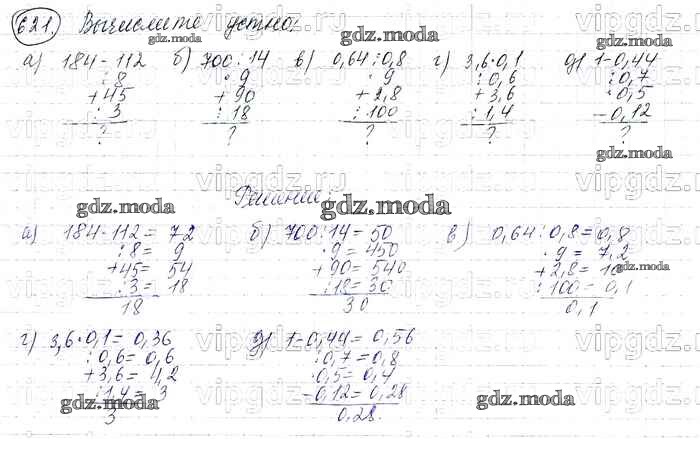 621. Вычислите устно:
а) 184-112 б) 700:14 в) 0,64:0,8 г) 3,6·0,1 д) 1-0,44
:8 ·9 ·9 :0,6 :0,7
+45 +90 +2,8 +3,6 ·0,5
:3 :18 :100 :1,4 -0,12
? ? ? ? ?
Решение:
а) 184-112= 72 б) 700:14= 50 в) 0,64:0,8= 0,8
:8= 9 ·9= 450 ·9= 7,2
+45= 54 +90= 540 +2,8= 10
:3= 18 :18= 30 :100= 0,1
18 30 0,1
г) 3,6·0,1= 0,36 д) 1-0,44= 0,56
:0,6= 0,6 :0,7= 0,8
+3,6= 4,2 ·0,5= 0,4
:1,4= 3 -0,12= 0,28
3 0,28.
gdz.moda
vipgdz.ru